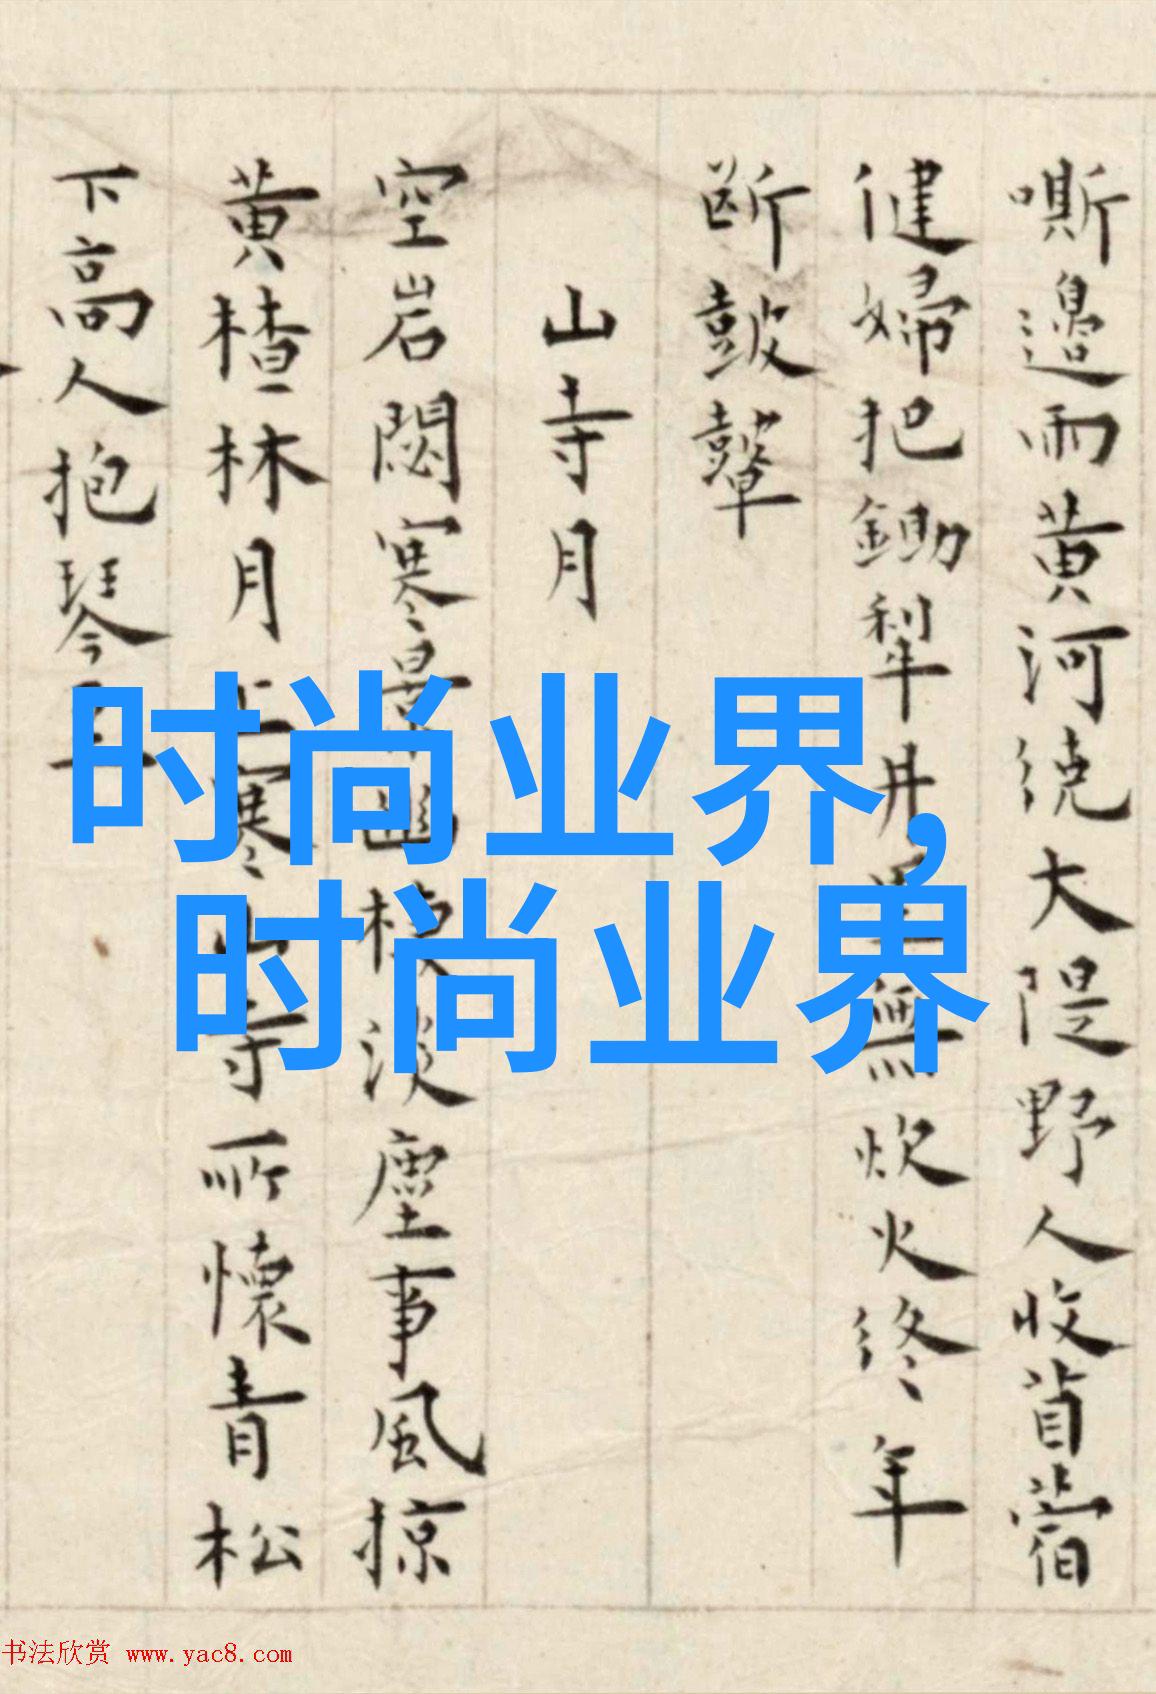 嘶邊雨黄河繞大隄野人收苜蓿
健婦把鋤犁井里無炊火終年
斷皷鼙
山寺月
空岩閟寒景幽棲淡塵事風掠
黄楂林月上寒山寺所懷青松
下高人抱琴至
时尚业界,
时尚业界
书法欣赏 www.yac8.com